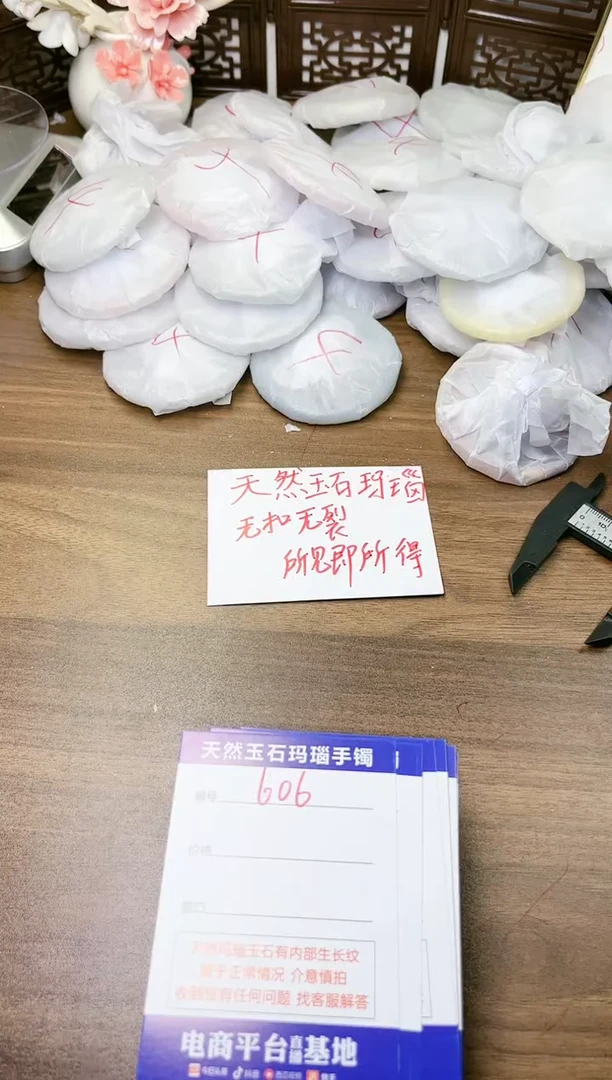 天然玉石玛瑙
无扣无裂
所见即所得
天然玉石玛瑙手镯
编号 606
价格
圈口
天然玛瑙玉石有内部生长纹
属于正常情况 介意慎拍
收到货有任何问题 找客服解答
电商平台直播基地
今日头条 抖音 西瓜视频 快手